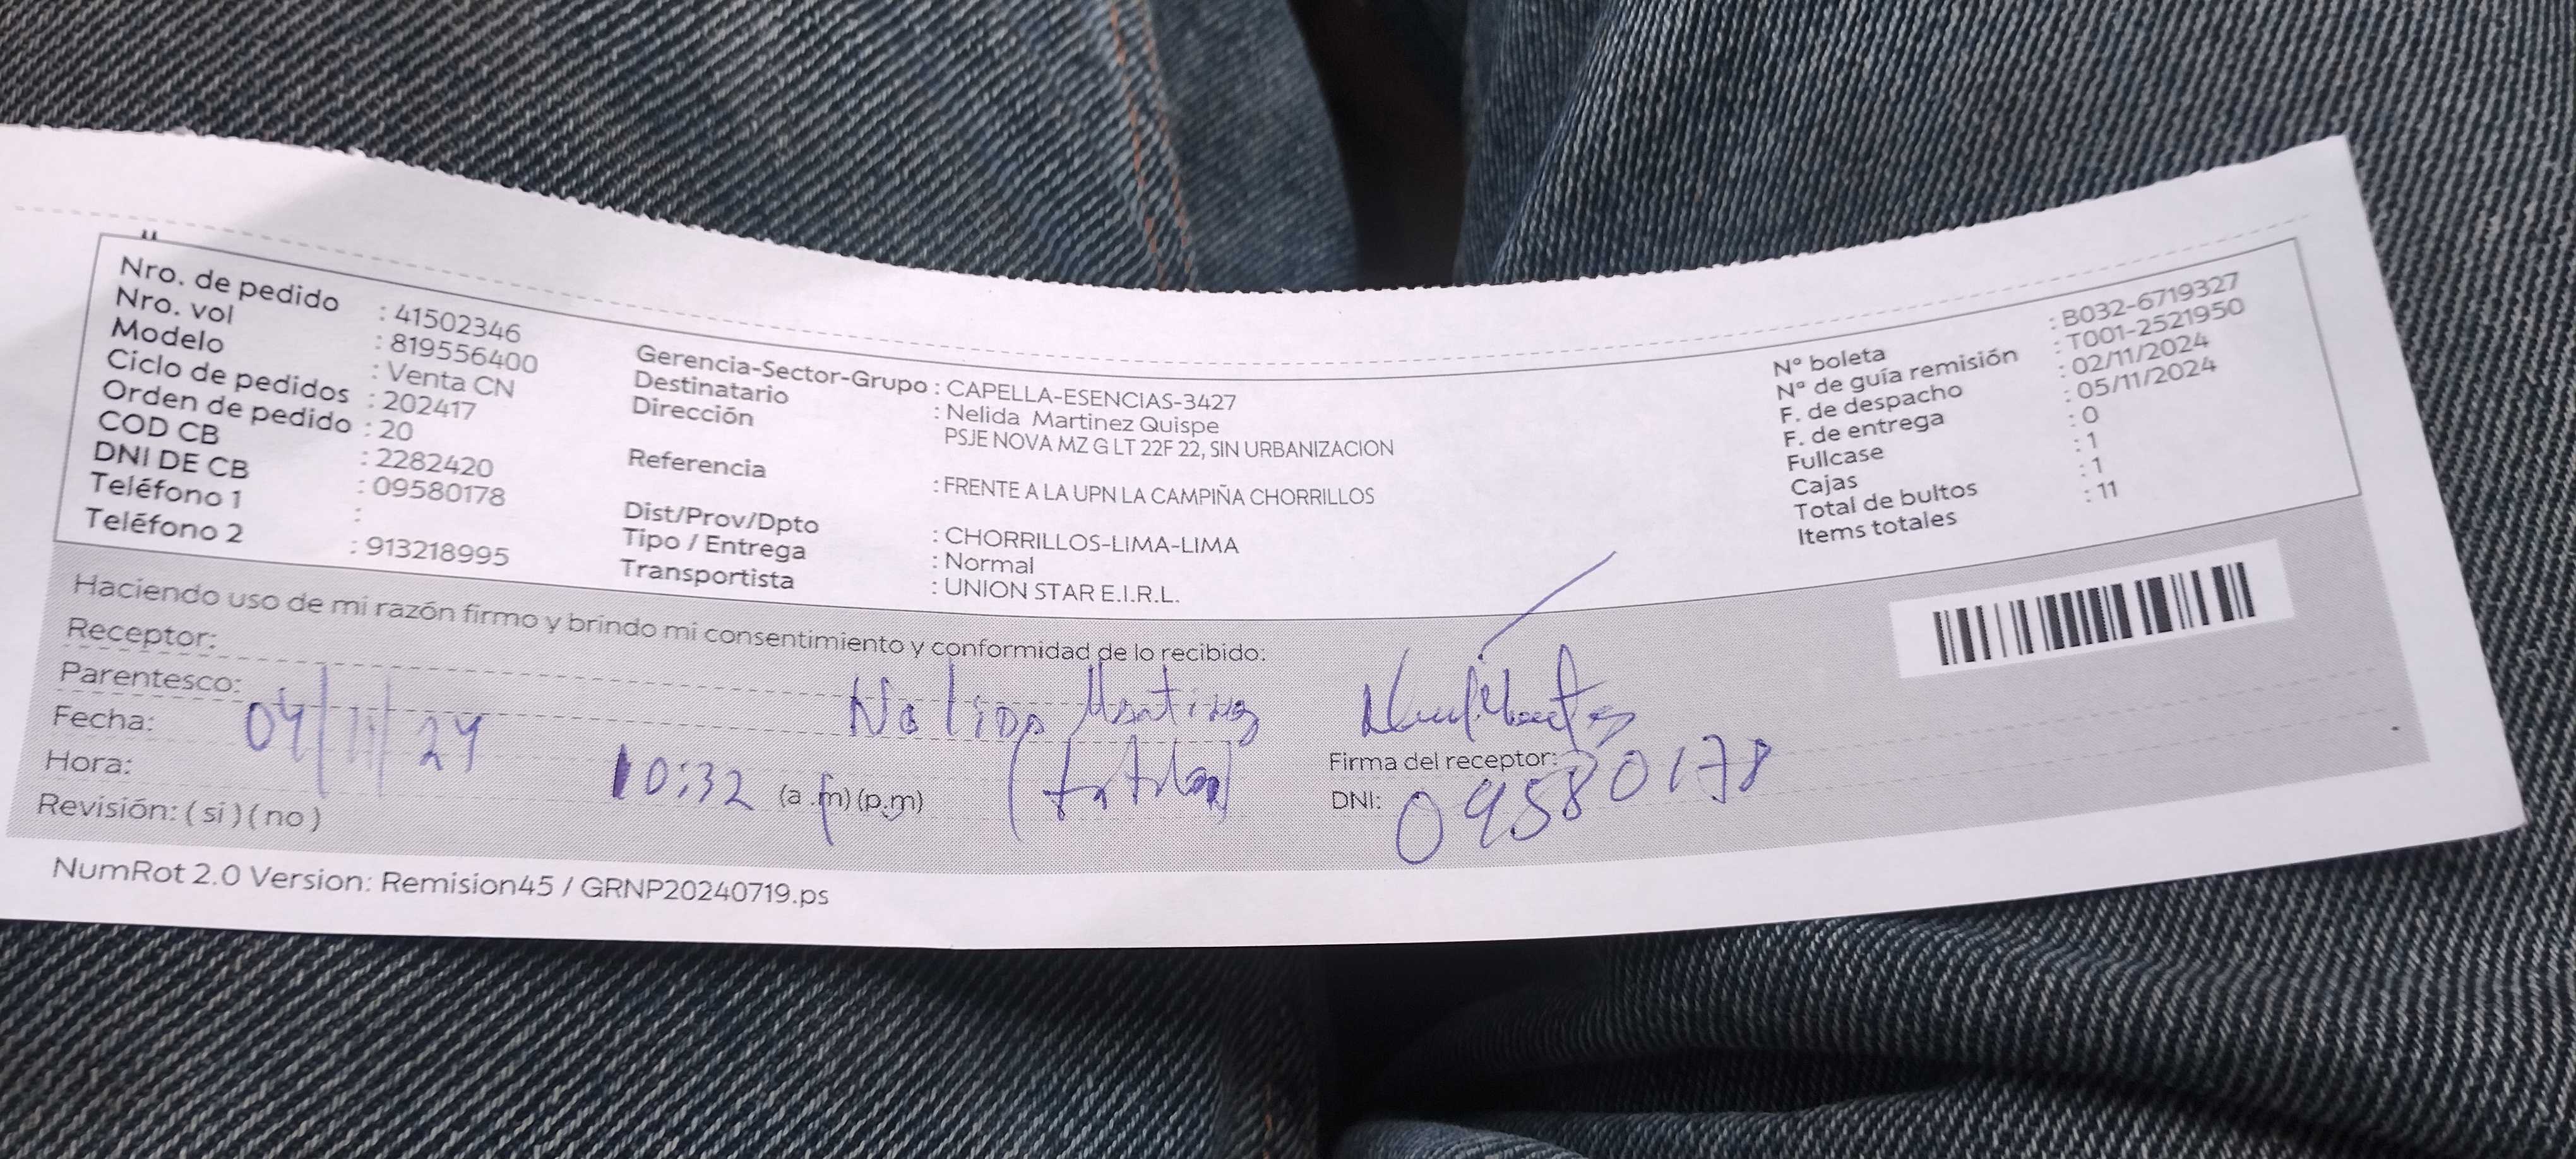 Nro. de pedido : 41502346
Nro. vol : 819556400
Modelo : Venta CN
Ciclo de pedidos : 202417
Orden de pedido : 20
COD CB : 2282420
DNI DE CB : 09580178
Teléfono 1 :
Teléfono 2 : 913218995
Gerencia-Sector-Grupo : CAPELLA-ESENCIAS-3427
Destinatario : Nelida Martinez Quispe
Dirección PSJE NOVA MZ G LT 22F 22, SIN URBANIZACION
Referencia : FRENTE A LA UPN LA CAMPIÑA CHORRILLOS
Dist/Prov/Dpto : CHORRILLOS-LIMA-LIMA
Tipo / Entrega : Normal
Transportista : UNION STAR E.I.R.L.
N° boleta : B032-6719327
N° de guía remisión : T001-2521950
F. de despacho : 02/11/2024
F. de entrega : 05/11/2024
Fullcase : 0
Cajas : 1
Total de bultos : 1
Items totales : 11
Haciendo uso de mi razón firmo y brindo mi consentimiento y conformidad de lo recibido:
Receptor:
Parentesco:
Fecha: 04/11/24
Hora: 10:32 (a.m)(p.m)
Revisión: ( si ) ( no )
Firma del receptor:
DNI: 09580178
NumRot 2.0 Version: Remision45 / GRNP20240719.ps